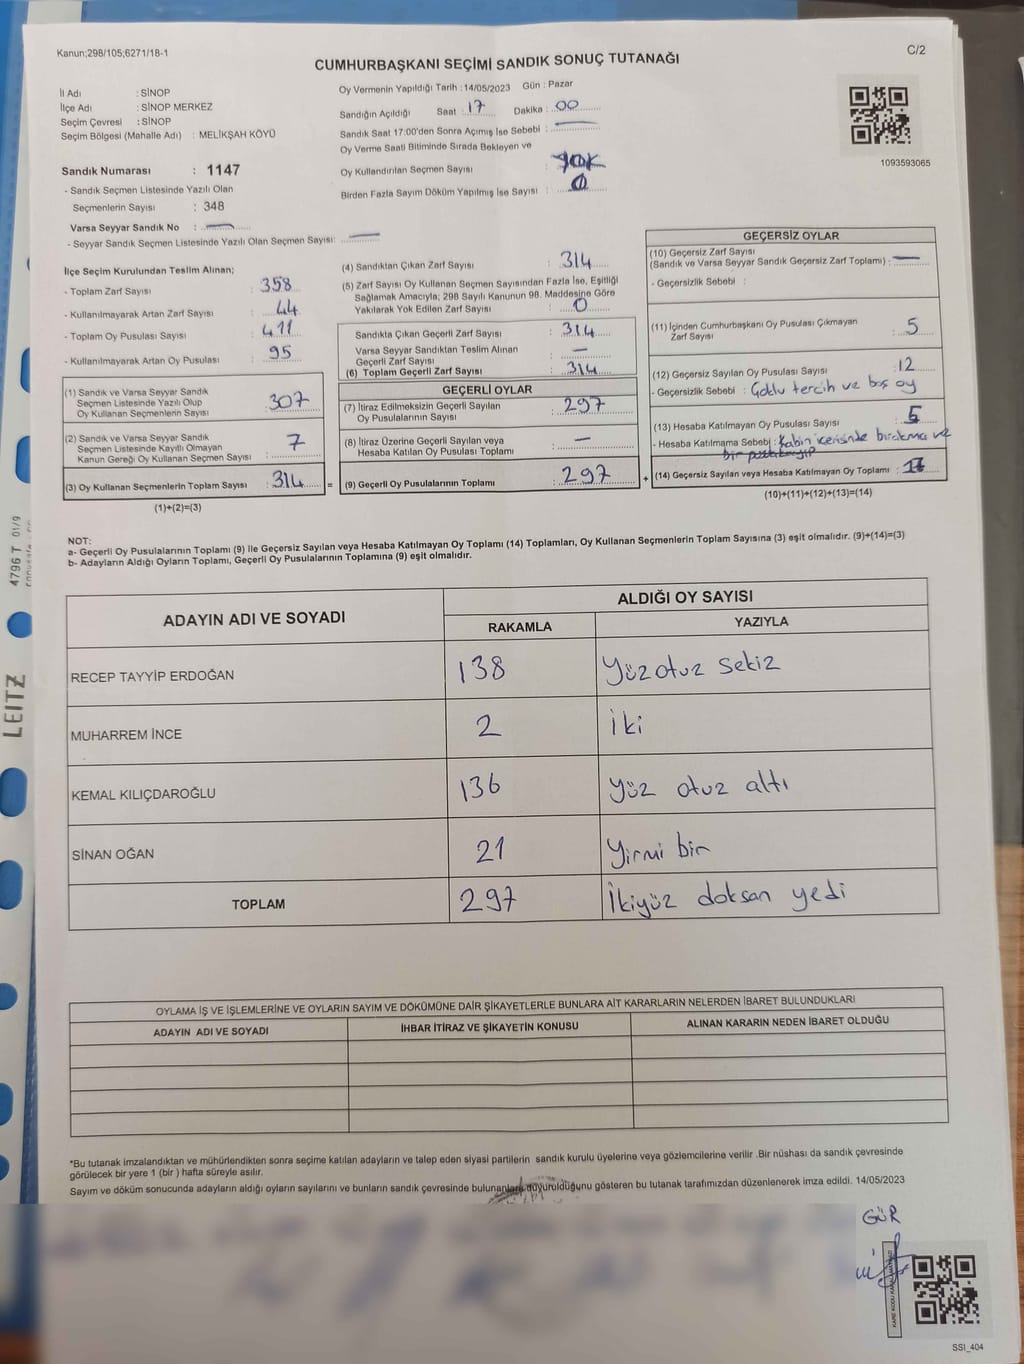 Kanun;298/105;6271/18-1
C/2
CUMHURBAŞKANI SEÇİMİ SANDIK SONUÇ TUTANAĞI
İl Adı : SİNOP
İlçe Adı : SİNOP MERKEZ
Seçim Çevresi : SİNOP
Seçim Bölgesi (Mahalle Adı) : MELİKŞAH KÖYÜ
Oy Vermenin Yapıldığı Tarih : 14/05/2023 Gün : Pazar
Sandığın Açıldığı Saat : 17 Dakika : 00
Sandık Saat 17:00'den Sonra Açımış İse Sebebi : —
Oy Verme Saati Bitiminde Sırada Bekleyen ve
Oy Kullandırılan Seçmen Sayısı : YOK
Birden Fazla Sayım Döküm Yapılmış İse Sayısı : 0
1093593065
Sandık Numarası : 1147
- Sandık Seçmen Listesinde Yazılı Olan
Seçmenlerin Sayısı : 348
Varsa Seyyar Sandık No : —
- Seyyar Sandık Seçmen Listesinde Yazılı Olan Seçmen Sayısı: —
İlçe Seçim Kurulundan Teslim Alınan;
- Toplam Zarf Sayısı : 358
- Kullanılmayarak Artan Zarf Sayısı : 44
- Toplam Oy Pusulası Sayısı : 411
- Kullanılmayarak Artan Oy Pusulası : 95
(1) Sandık ve Varsa Seyyar Sandık
Seçmen Listesinde Yazılı Olup
Oy Kullanan Seçmenlerin Sayısı : 307
(2) Sandık ve Varsa Seyyar Sandık
Seçmen Listesinde Kayıtlı Olmayan
Kanun Gereği Oy Kullanan Seçmen Sayısı : 7
(3) Oy Kullanan Seçmenlerin Toplam Sayısı : 314 =
(1)+(2)=(3)
(4) Sandıktan Çıkan Zarf Sayısı : 314
(5) Zarf Sayısı Oy Kullanan Seçmen Sayısından Fazla İse, Eşitliği
Sağlamak Amacıyla; 298 Sayılı Kanunun 98. Maddesine Göre
Yakılarak Yok Edilen Zarf Sayısı : 0
Sandıkta Çıkan Geçerli Zarf Sayısı : 314
Varsa Seyyar Sandıktan Teslim Alınan
Geçerli Zarf Sayısı : —
(6) Toplam Geçerli Zarf Sayısı : 314
GEÇERLİ OYLAR
(7) İtiraz Edilmeksizin Geçerli Sayılan
Oy Pusulalarının Sayısı : 297
(8) İtiraz Üzerine Geçerli Sayılan veya
Hesaba Katılan Oy Pusulası Toplamı : —
(9) Geçerli Oy Pusulalarının Toplamı : 297 +
GEÇERSİZ OYLAR
(10) Geçersiz Zarf Sayısı
(Sandık ve Varsa Seyyar Sandık Geçersiz Zarf Toplamı) : —
- Geçersizlik Sebebi :
(11) İçinden Cumhurbaşkanı Oy Pusulası Çıkmayan
Zarf Sayısı : 5
(12) Geçersiz Sayılan Oy Pusulası Sayısı : 12
- Geçersizlik Sebebi : Çoklu tercih ve boş oy
(13) Hesaba Katılmayan Oy Pusulası Sayısı : 5
- Hesaba Katılmama Sebebi : Kabin içerisinde bırakma ve
(14) Geçersiz Sayılan veya Hesaba Katılmayan Oy Toplamı : 17
(10)+(11)+(12)+(13)=(14)
NOT:
a- Geçerli Oy Pusulalarının Toplamı (9) ile Geçersiz Sayılan veya Hesaba Katılmayan Oy Toplamı (14) Toplamları, Oy Kullanan Seçmenlerin Toplam Sayısına (3) eşit olmalıdır. (9)+(14)=(3)
b- Adayların Aldığı Oyların Toplamı, Geçerli Oy Pusulalarının Toplamına (9) eşit olmalıdır.
ADAYIN ADI VE SOYADI
ALDIĞI OY SAYISI
RAKAMLA YAZIYLA
RECEP TAYYİP ERDOĞAN 138 Yüzotuz sekiz
MUHARREM İNCE 2 İki
KEMAL KILIÇDAROĞLU 136 Yüz otuz altı
SİNAN OĞAN 21 Yirmi bir
TOPLAM 297 İkiyüz doksan yedi
OYLAMA İŞ VE İŞLEMLERİNE VE OYLARIN SAYIM VE DÖKÜMÜNE DAİR ŞİKAYETLERLE BUNLARA AİT KARARLARIN NELERDEN İBARET BULUNDUKLARI
ADAYIN ADI VE SOYADI İHBAR İTİRAZ VE ŞİKAYETİN KONUSU ALINAN KARARIN NEDEN İBARET OLDUĞU
*Bu tutanak imzalandıktan ve mühürlendikten sonra seçime katılan adayların ve talep eden siyasi partilerin sandık kurulu üyelerine veya gözlemcilerine verilir .Bir nüshası da sandık çevresinde
görülecek bir yere 1 (bir ) hafta süreyle asılır.
Sayım ve döküm sonucunda adayların aldığı oyların sayılarını ve bunların sandık çevresinde bulunanlara duyurulduğunu gösteren bu tutanak tarafımızdan düzenlenerek imza edildi. 14/05/2023
GÜR
SSI_404
LEITZ
4796 T 01/9